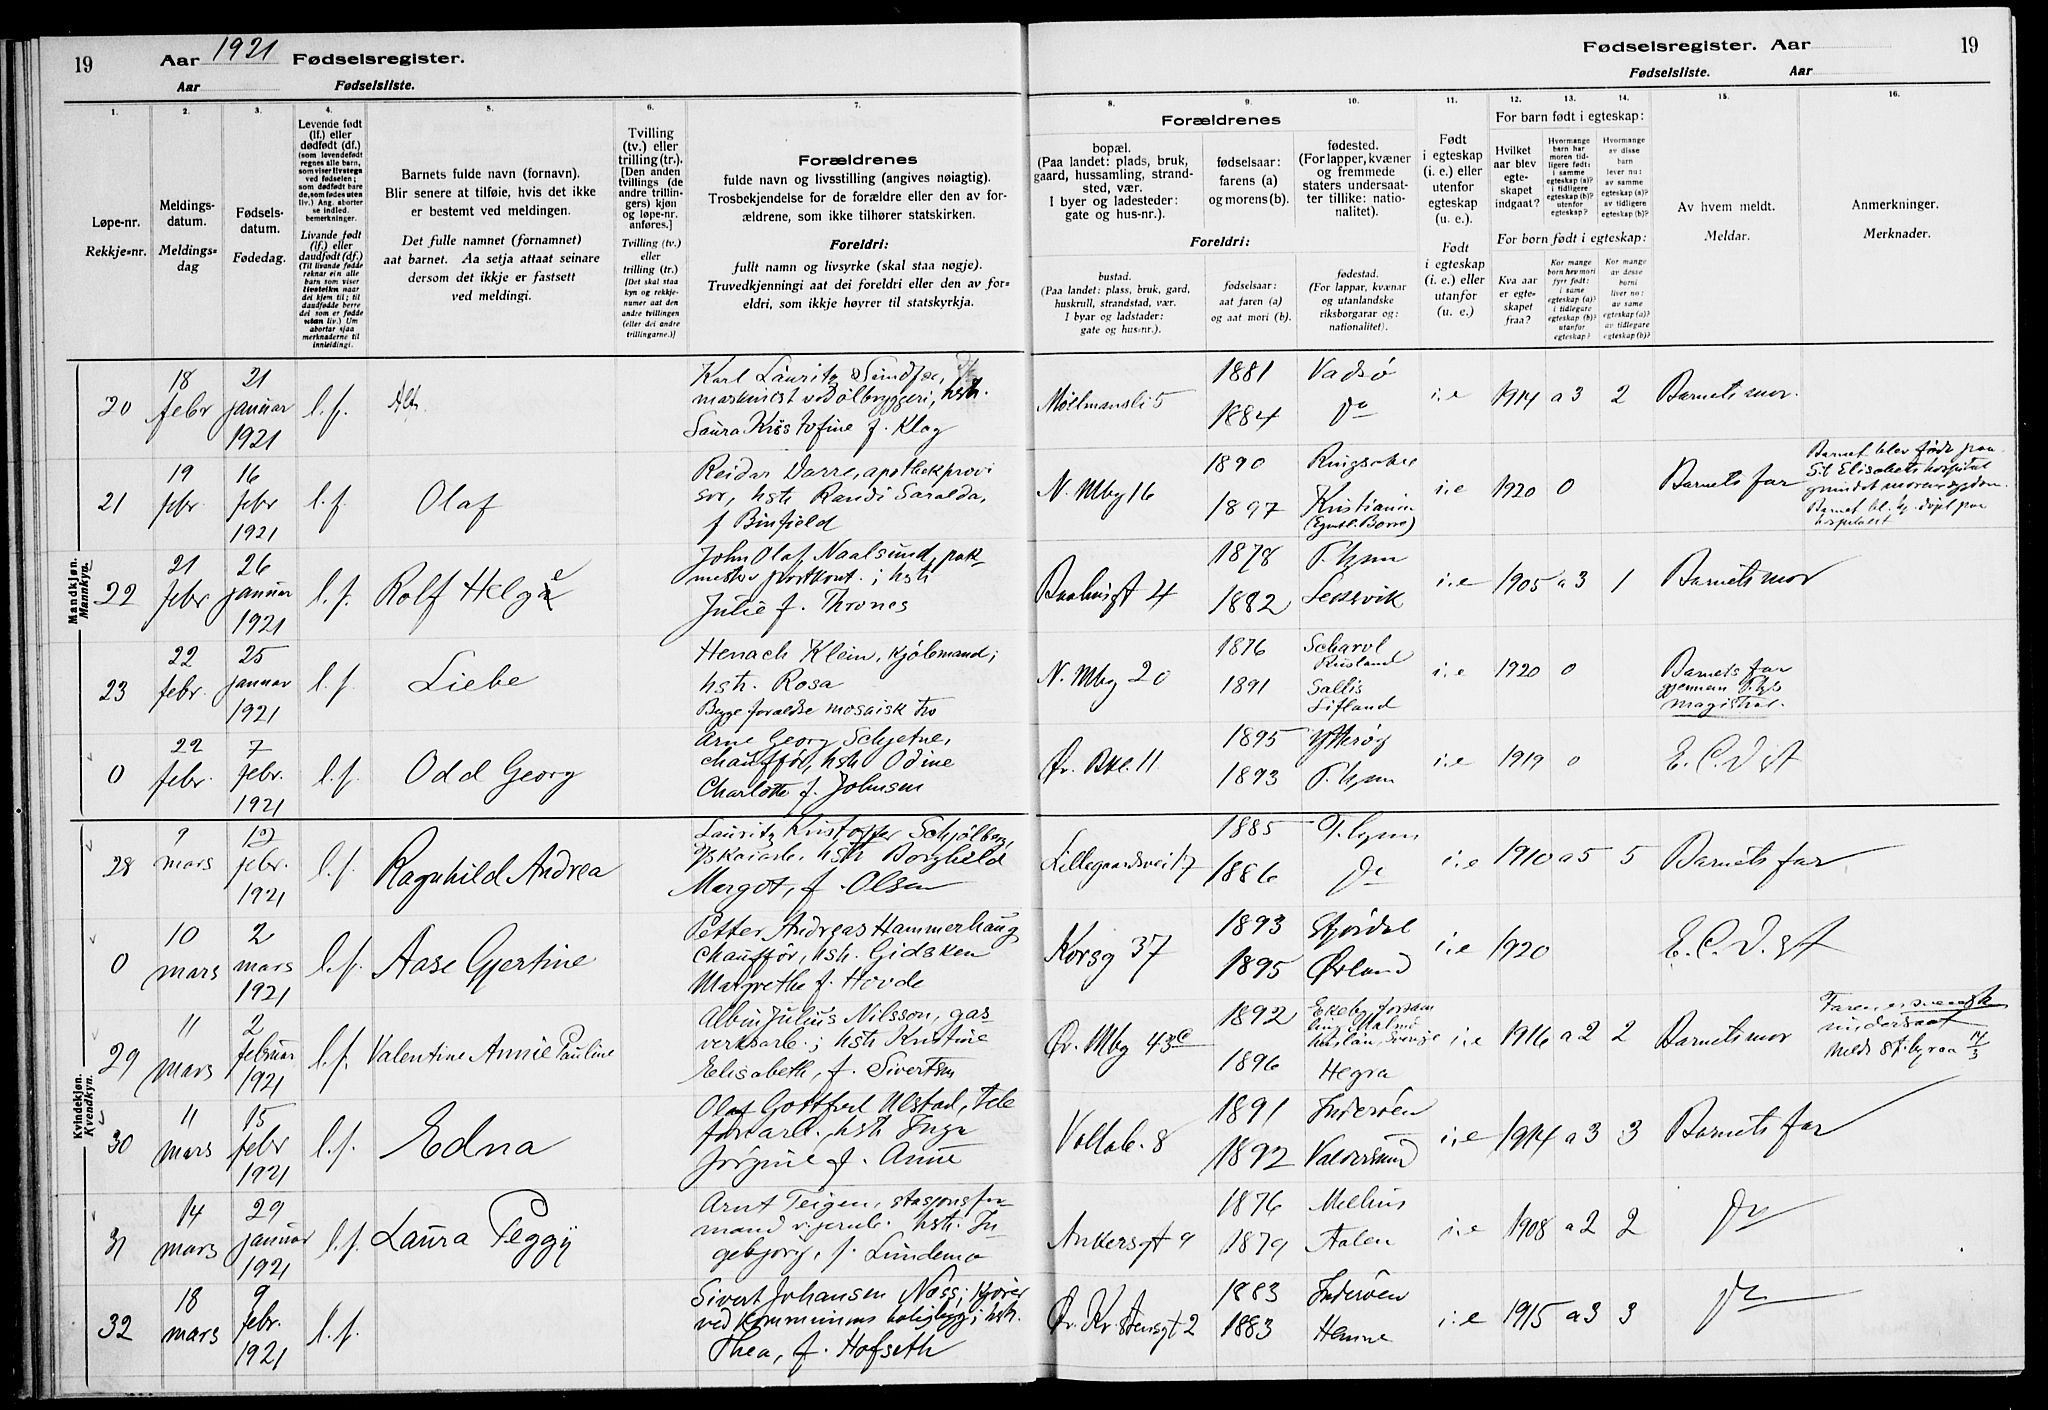 19
Aar 1921 Fødselsregister.
Aar Fødselsliste.
Fødselsregister. Aar
19
Fødselsliste. Aar
1.
Løpe-nr.
Rekkje-nr.
2.
Meldings-
datum.
Meldings-
dag
3.
Fødsels-
datum.
Fødedag.
4.
Levende født
(lf.) eller
dødfødt (df.)
(som levendefødt
regnes alle barn,
som viser livstegn
ved fødselen;
som dødfødt bare
de, som fødes uten
liv.) Ang. aborter
se indled.
bemerkninger.
Livande født
(lf.) eller
daudfødt (df.)
(Til livande fødde
reknar ein alle
barn som viser
livsteikn naar
dei kjem til; til
daudfødde berre
dei som er fødde
utan liv.) Um
abortar sjaa
merknaderne til
innleidingi.
5.
Barnets fulde navn (fornavn).
Blir senere at tilføie, hvis det ikke
er bestemt ved meldingen.
Det fulle namnet (fornamnet)
aat barnet. Aa setja attaat seinare
dersom det ikkje er fastsett
ved meldingi.
6.
Tvilling
(tv.) eller
trilling (tr.).
[Den anden
tvillings (de
andre trillin-
gers) kjøn
og løpe-nr.
anføres.]
Tvilling (tv.)
eller
trilling (tr.)
[Det skal staa
kyn og rekkje-
numer aat den
andre tvillingen
(eller dei andre
trillingarne.)]
7.
Forældrenes
fulde navn og livsstilling (angives nøiagtig).
Trosbekjendelse for de forældre eller den av for-
ældrene, som ikke tilhører statskirken.
Foreldri:
fullt namn og livsyrke (skal staa nøgje).
Truvedkjenningi aat dei foreldri eller den av for-
eldri, som ikkje høyrer til statskyrkja.
Forældrenes
8.
bopæl.
(Paa landet: plads, bruk,
gaard, hussamling, strand-
sted, vær.
I byer og ladesteder:
gate og hus-nr.).
9.
fødselsaar:
farens (a)
og morens (b).
10.
fødested.
(For lapper, kvæner
og fremmede
staters undersaat-
ter tillike: natio-
nalitet).
Foreldri:
bustad.
(Paa landet: plass, bruk, gard,
huskrull, strandstad, vær.
I byar og ladstader:
gate og hus-nr.).
fødselsaar:
aat faren (a)
og aat mori (b).
fødestad.
(For lappar, kvænar
og utanlandske
riksborgarar og:
nationalitet).
11.
Født
i egteskap
(i. e.) eller
utenfor
egteskap
(u. e.).
Født
i egteskap
(i. e.) eller
utanfor
(u. e.)
For barn født i egteskap:
12.
Hvilket
aar blev
egte-
skapet
indgaat?
13.
Hvormange
barn har
moren tid-
ligere født:
i samme
egteskap (a)?
i tidligere
egteskap (b)?
utenfor
egteskap?
14.
Hvormange
av disse
barn
lever nu:
av samme
egteskap (a)?
av tidligere
egteskap (b)?
For born født i egteskap:
Kva aar
er egte-
skapet
fraa?
Kor mange
born hev mori
fyrr født:
i same
egteskap (a)?
i tidlegare
egteskap (b)?
utanfor
egteskap?
Kor mange
av desse
borni
liver no:
av same
egteskap (a)?
av tidlegare
egteskap (b)?
15.
Av hvem meldt.
Meldar.
16.
Anmerkninger.
Merknader.
Mandkjøn.
Mannkyn.
20
18
febr
21
januar
1921
l. f.
Karl Lauritz Sundfær,
maskinist ved ølbryggeri, hstr.
Laura Kristofine f. Klag
Møllmansli 5
1881
1884
Vadsø
Do
i. e
1914 a 3 2
Barnets mor.
21
19
febr.
16
febr
1921
l. f.
Olaf
Reidar Darre, apothekprovi
sor, hstr Randi Saralda,
f Binfield
N. Mbg 16
1890
1897
Ringsaker
Kristiania
i. e
1920 0
Barnets far
Barnet blev født paa
St Elisabets hospital
22
21
febr
26
januar
1921
l. f.
Rolf Helge
John Olaf Naalsund, pak
mester postkont. ; hstr
Julie f. Thrones
Baahusgt 4
1878
1882
T.hjem
Leksvik
i. e
1905 a 3 1
Barnets mor
23
22
febr.
25
januar
1921
l. f.
Liebe
Henach Klein, kjøbmand;
hstr. Rosa
Begge forældre mosaisk tro
N. Mbg 20
1876
1891
Rusland
Sallis
Lifland
i. e
1920 0
Barnets far
gjennem T.hjs
magistrat.
0
22
febr.
7
febr.
1921
l. f.
Odd Georg
Arne Georg Schjetne,
chauffør, hstr Odine
Charlotte f. Johnsen
Øv. Bkl. 11
1895
1893
Ytterøy
T.hjem
i. e
1919 0
E. C. D. st
Kvindekjøn.
Kvendkyn.
28
9
mars
12
febr.
1921
l. f.
Ragnhild Andrea
Lauritz Kristoffer Schjølberg,
hstr Borghild
Margot, f. Olsen
Lillegaardsvei 17
1885
1886
T.hjem
Do
i. e
1910 a 5 5
Barnets far
0
10
mars
2
mars
1921
l. f.
Aase Gjertine
Petter Andreas Hammerhaug
chauffør, hstr. Gidsken
Margrethe f. Hovde
Korsg 37
1893
1895
Stjørdal
Ørland
i. e
1920
E. C. D. st
29
11
mars
2
februar
1921
l. f.
Valentine Annie Pauline
Albin Julius Nilsson, gas
verksarb. ; hstr Kristine
Elisabeth, f. Sivertsen
Øv. Mbg 43c
1892
1896
Hegra
i. e
1916 a 2 2
Barnets mor
Faren er svensk
undersaat
30
11
mars
15
febr
1921
l. f.
Edna
Olaf Gottfred Ulstad, tele
fonarb. hstr Inga
Jørgine f. Aune
Vollab. 8
1891
1892
Inderøen
Valdersund
i. e
1914 a 3 3
Barnets far
31
14
mars
29
januar
1921
l. f.
Laura Peggy
Arnt Teigen, stasjonsfor
mand v. jernb. hstr. In
gebjørg, f. Lundemo
Ankersgt 9
1876
1879
Melhus
Aalen
i. e
1908 a 2 2
Do
32
18
mars
9
febr.
1921
l. f.
Sivert Johansen Næss, kjører
ved kommunens boligbygg; hstr.
Thea, f. Hofseth
Øv. Kr.stensgt 2
1883
1883
Inderøen
Hemne
i. e
1915 a 3 3
Do